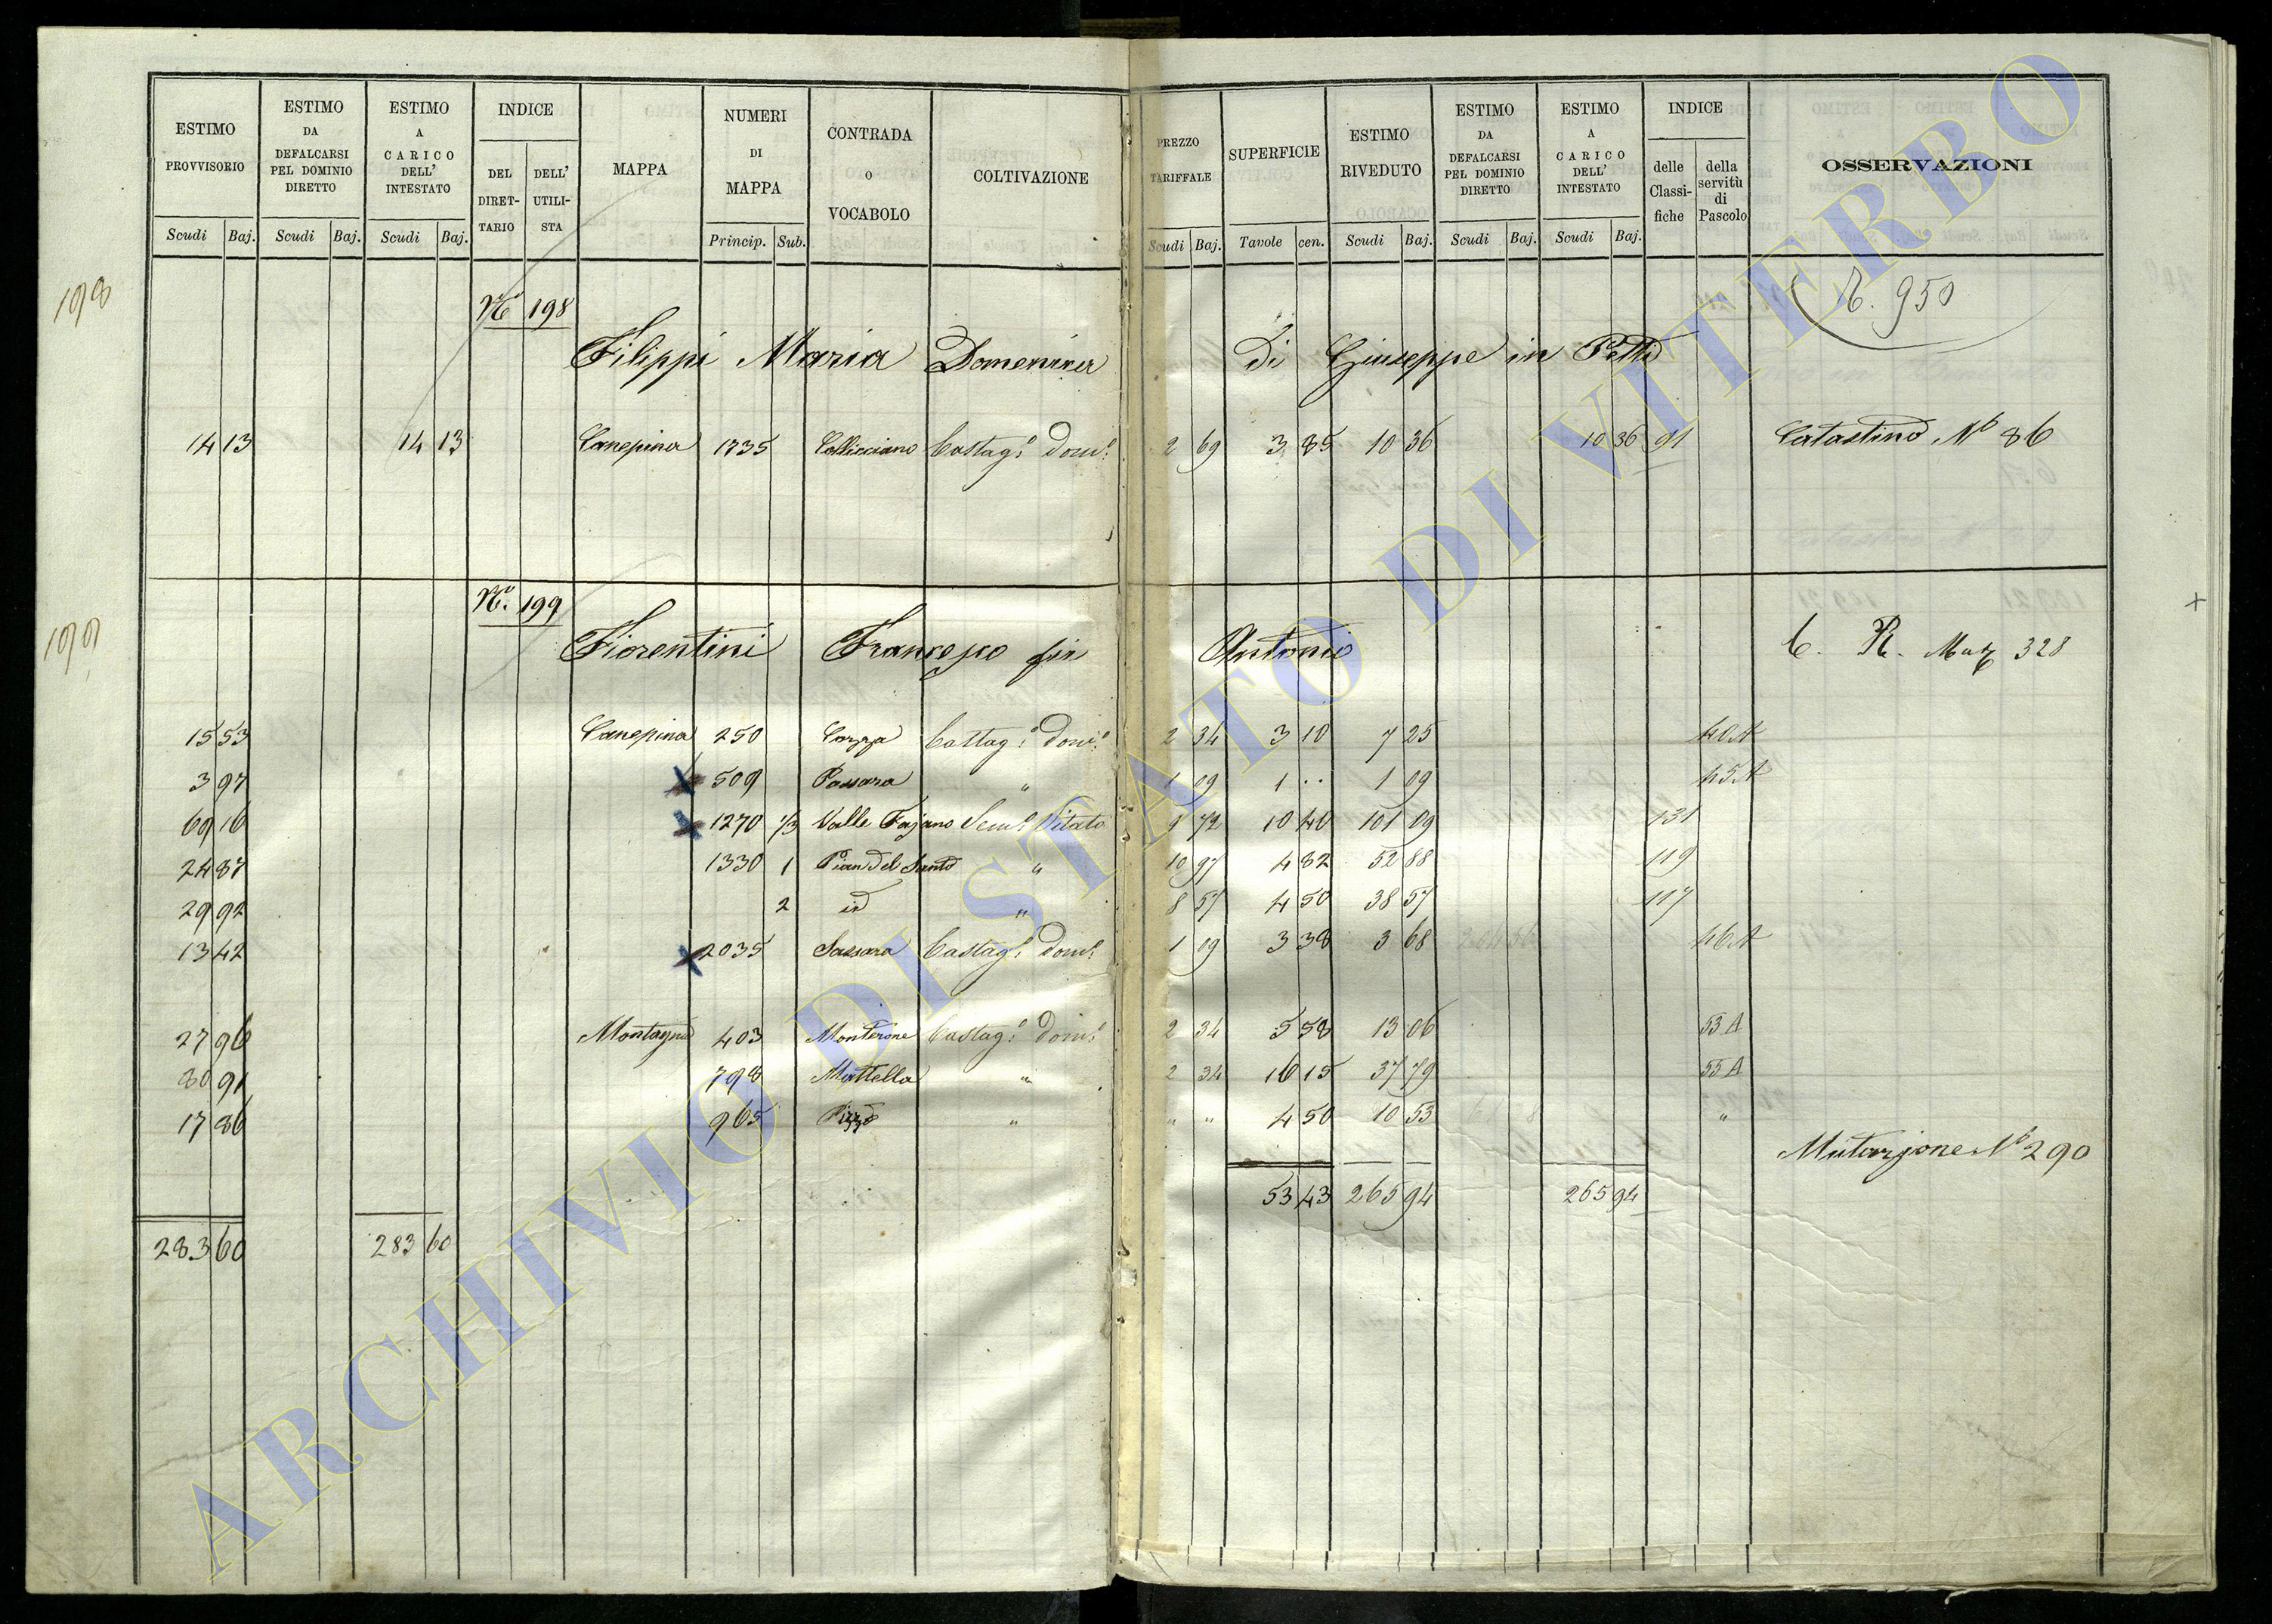 ESTIMO PROVVISORIO Scudi Baj. ESTIMO DA DEFALCARSI PEL DOMINIO DIRETTO Scudi Baj. ESTIMO A CARICO DELL' INTESTATO Scudi Baj. INDICE DEL DIRET-TARIO DELL' UTILI-STA MAPPA NUMERI DI MAPPA Princip. Sub. CONTRADA O VOCABOLO COLTIVAZIONE PREZZO TARIFFALE Scudi Baj. SUPERFICIE Tavole cen. ESTIMO RIVEDUTO Scudi Baj. ESTIMO DA DEFALCARSI PEL DOMINIO DIRETTO Scudi Baj. ESTIMO A CARICO DELL' INTESTATO Scudi Baj. INDICE delle Classi-fiche della servitù di Pascolo OSSERVAZIONI
198 No 198 950
Filippi Maria Domenica di Giuseppe in Petti
14 13 14 13 Canepina 1735 Collicciano Castag.o Dom.e 2 69 3 85 10 36 10 36 91 Catastino No 86
199 No. 199
Fiorentini Francesco fu Antonio C. R. 328
15 53 Canepina 250 Castag.o Dom.e 2 34 3 10 7 25 40A
3 97 509 Passara " 1 09 1 .. 1 09 45A
69 16 1270 1/3 Valle Fajano Sem.o Vitato 9 72 10 40 101 09 131
24 87 1330 1 Pian del Santo " 10 97 4 82 52 88 119
29 92 2 id " 8 57 4 50 38 57 117
13 42 2035 Sassara Castag.o Dom.e 1 09 3 38 3 68 46A
27 96 Montagna 403 Monterone Castag.o Dom.e 2 34 5 58 13 06 53A
80 91 798 Mattella " 2 34 16 15 37 79 55A
17 86 965 " " " 4 50 10 53 "
Mutazione No 290
53 43 265 94 265 94
283 60 283 60
ARCHIVIO DI STATO DI VITERBO